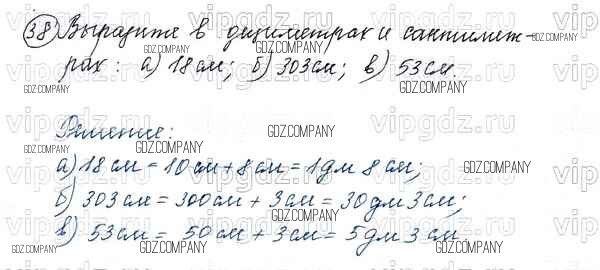 38 Выразите в дециметрах и сантимет-
рах: а) 18 см; б) 303 см; в) 53 см.
Решение:
а) 18 см = 10 см + 8 см = 1 дм 8 см;
б) 303 см = 300 см + 3 см = 30 дм 3 см;
в) 53 см = 50 см + 3 см = 5 дм 3 см